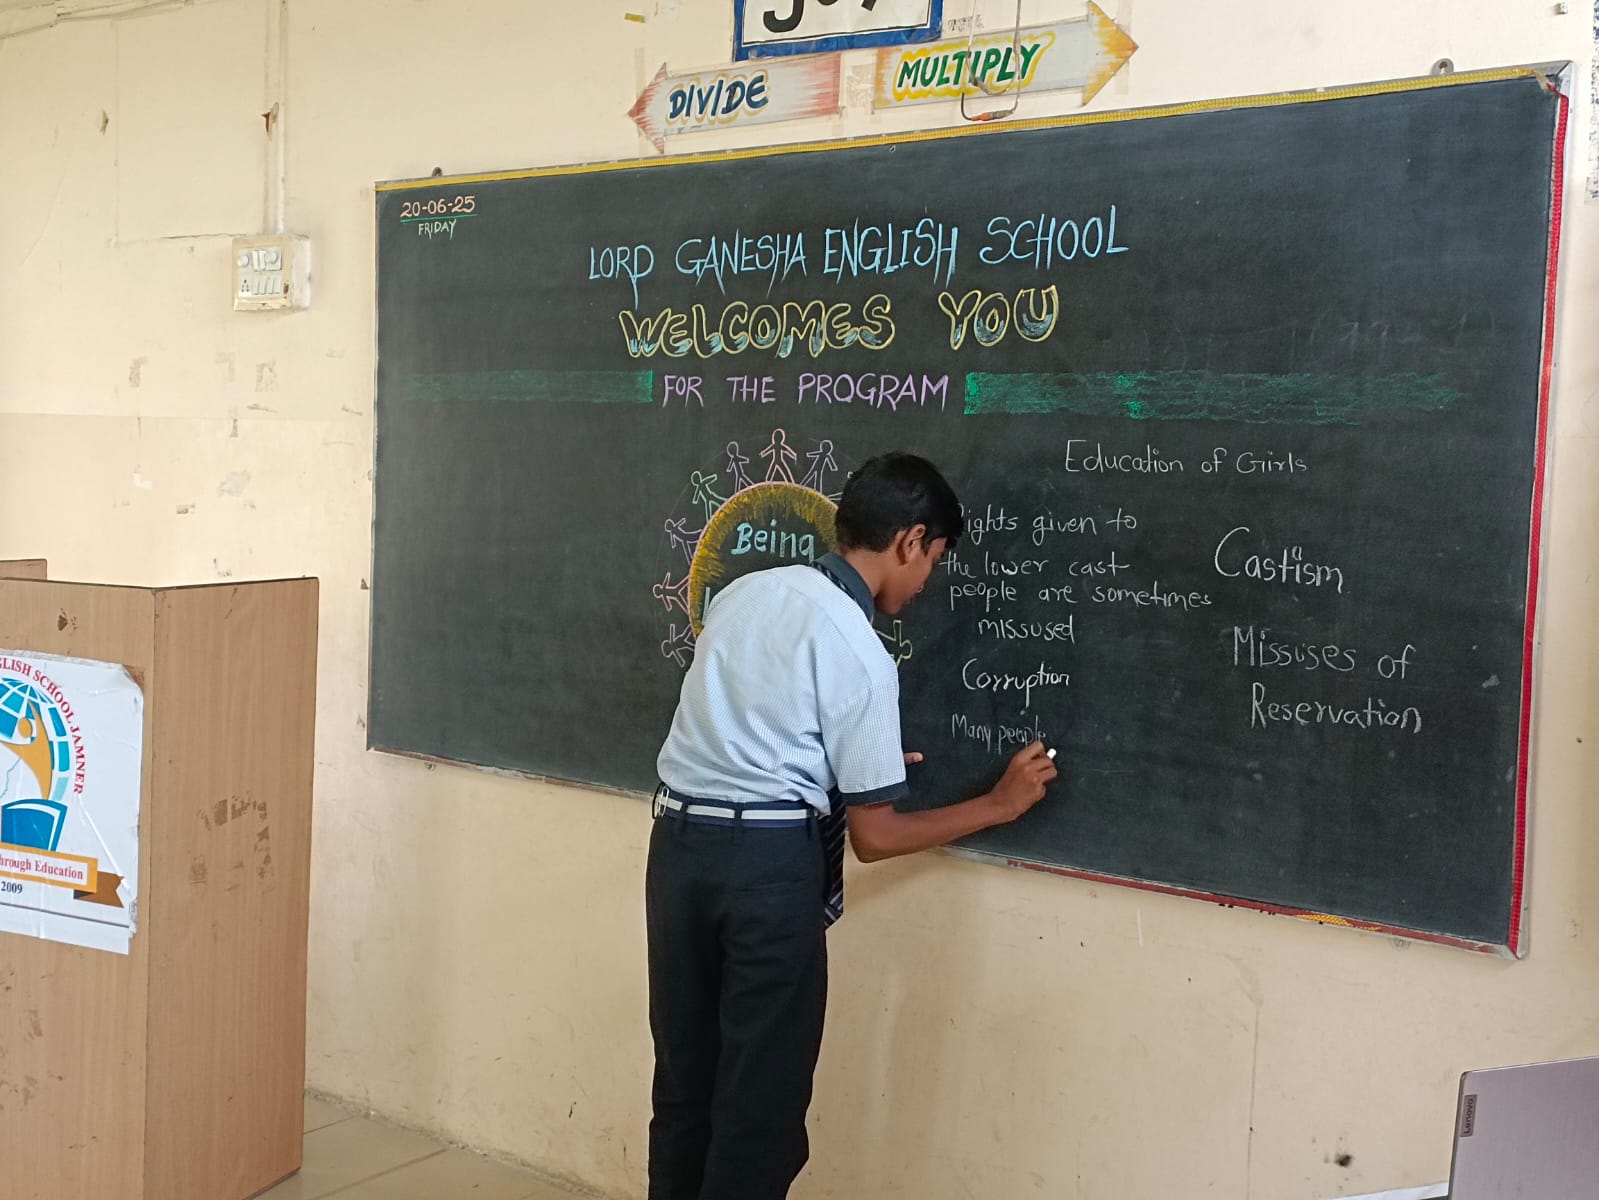 DIVIDE
MULTIPLY
20-06-25
FRIDAY
LORD GANESHA ENGLISH SCHOOL
WELCOMES YOU
FOR THE PROGRAM
Being
Education of Girls
the lower cast
people are sometimes
missused
ights given to
Castism
Corruption
Many people
Missuses of
Reservation
GLISH SCHOOL JAMNER
hrough Education
2009
Lenovo